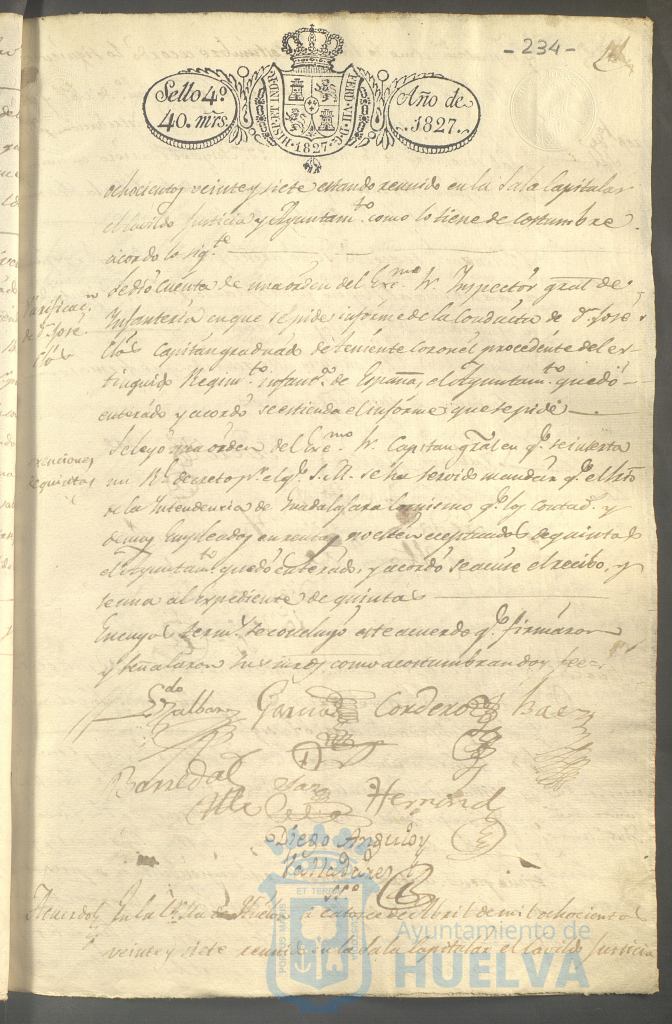 - 234 -
Sello 4º
40. mrs.
HISP. ET IND. R. FERD. VII. D. G. 1827.
Año de
1827.
ochocientos veinte y siete estando reunido en la Sala Capitular
el Cavildo Justicia y Ayuntam.to como lo tiene de costumbre
acordo lo sig.te
Se dio cuenta de una orden del Exc.mo Sr. Inspector gral de
Infanteria en que se pide informe de la Conducta de D. Jose
Capitan graduado de teniente Coronel procedente del ex-
tinguido Regim.to infant.ª de España, el Ayuntam.to quedó
enterado y acordó se estienda el informe que se pide
Se leyó una orden del Exc.mo Sr. Capitan gral en q.e se inserta
un Rl. decreto p.r el q.e S. M. se ha servido mandar q.e
de la Intendencia de Guadalajara lo mismo q.e los Contad.s y
demas Empleados en rentas no esten eceptuados de quintas
el Ayuntam.to quedó enterado, y acordó se acuse el recibo, y
se una al expediente de quintas
En cuyos term.s se concluyó este acuerdo q.e firmaron
y señalaron sus mrds como acostumbran doy fee=
de D. Jose
exenciones
de quintas
Garcia Cordero Baez
Hernand
Diego Anguloy
Valladares
Sno
Acuerdo En la Villa de Huelva a catorce de Abril de mil ochocientos
veinte y siete reunido en la Sala Capitular el Cavildo Justicia
Ayuntamiento de
HUELVA